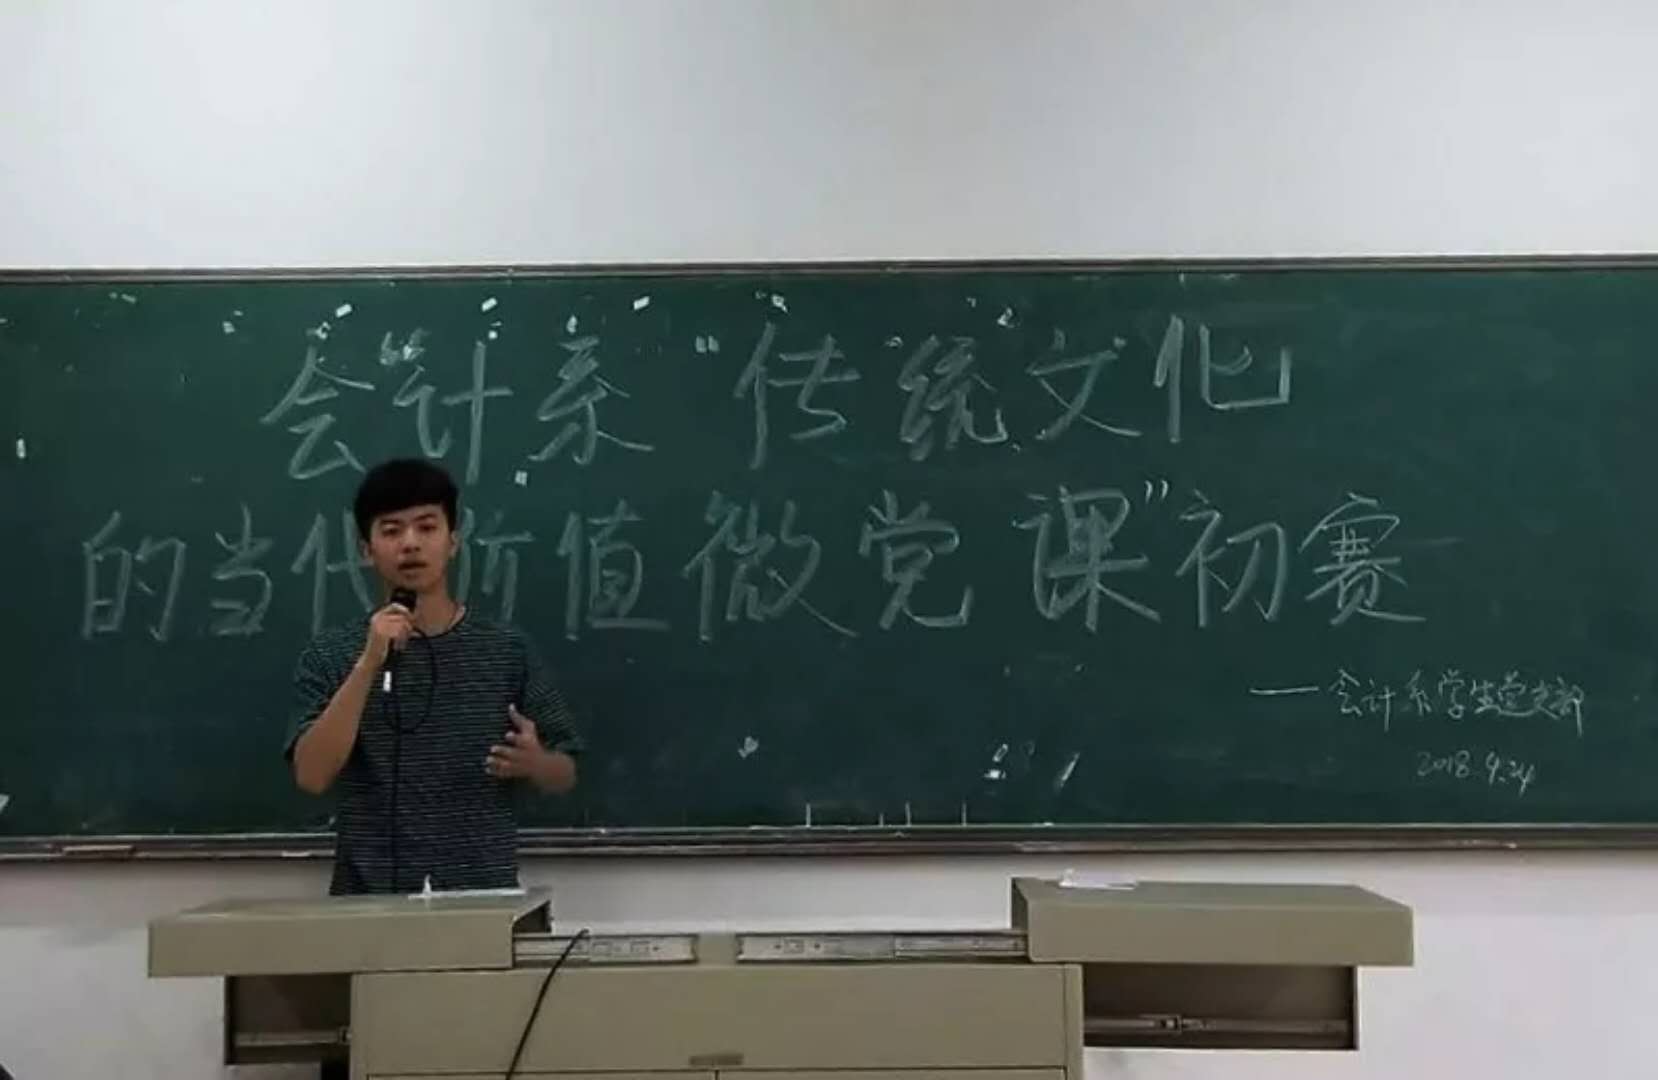 会计系“传统文化
的当代价值微党课”初赛
——会计系学生党支部
2018.9.24